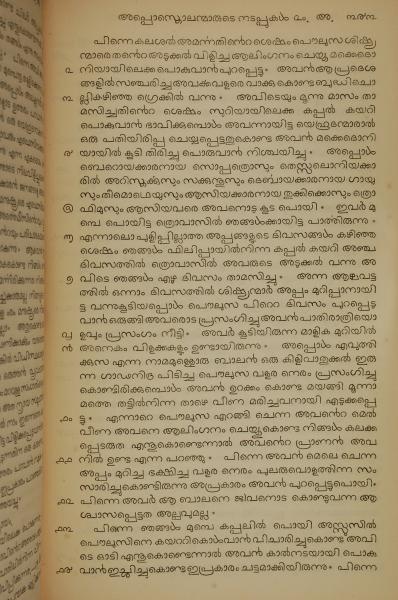 അപ്പൊസ്തൊലന്മാരുടെ നടപ്പുകൾ ൨൦. അ.
പിന്നെ കലശൽ അമൎന്നതിൻറെ ശെഷം പൌലുസ ശിഷ്യ
ന്മാരെ തൻറെ അടുക്കൽ വിളിച്ച ആലിംഗനം ചെയ്തു മക്കെദൊ
൨ നിയായിലെക്ക പൊകുവാൻ പുറപ്പെട്ടു൦ അവൻ ആ പ്രദെശ
ങ്ങളിൽ സഞ്ചരിച്ച അവൎക്ക വളരെ വാക്കു കൊണ്ട ബുദ്ധി ചൊ
൩ ല്ലിക്കഴിഞ്ഞ ഗ്രെക്കിൽ വന്നു൦ അവിടെയും മൂന്നു മാസം താ
മസിച്ചതിൻറെ ശെഷം സുറിയായിലെക്ക കപ്പൽ കയറി
പൊകുവാൻ ഭാവിക്കുമ്പൊൾ അവന്നായിട്ട യെഹൂദന്മാരാൽ
ഒരു പതിയിരിപ്പ ചെയ്യപ്പെട്ടതുകൊണ്ട അവൻ മക്കെദൊനി
൪ യായിൽ കൂടി തിരിച്ചു പൊരുവാൻ നിശ്ചയിച്ചു൦ അപ്പൊൾ
ബെറൊയക്കാരനായ സൊപ്പത്രൊസും തെസ്സലൊനിയക്കാ
രിൽ അറിസ്തൎക്കുസും സക്കുന്തുസും ദെൎബായക്കാരനായ ഗായു
സും തിമൊഥെയുസും ആസിയക്കാരനായ തുക്കിക്കൊസും ത്രൊ
൫ ഫിമുസും ആസിയവരെ അവനൊടു കൂട പൊയി൦ ഇവർ മു
മ്പെ പൊയിട്ട ത്രൊവാസിൽ ഞങ്ങൾക്കായിട്ട പാൎത്തിരുന്നു൦
൬ എന്നാലൊ പുളിപ്പില്ലാത്ത അപ്പങ്ങളുടെ ദിവസങ്ങൾ കഴിഞ്ഞ
ശെഷം ഞങ്ങൾ ഫിലിപ്പായിൽനിന്ന കപ്പൽ കയറി അഞ്ചു
ദിവസത്തിൽ ത്രൊവാസിൽ അവരുടെ അടുക്കൽ വന്നു അ
൭ വിടെ ഞങ്ങൾ എഴു ദിവസം താമസിച്ചു൦ അന്ന ആഴ്ചവട്ട
ത്തിൽ ഒന്നാം ദിവസത്തിൽ ശിഷ്യന്മാർ അപ്പം മുറിപ്പാനായി
ട്ട വന്നുകൂടിയപ്പൊൾ പൌലുസ പിറ്റെ ദിവസം പുറപ്പെടു
വാൻ ഒരുങ്ങി അവരൊട പ്രസംഗിച്ചു അവൻ പാതിരാത്രിയൊ
൮ ളവും പ്രസംഗം നീട്ടി൦ അവർ കൂടിയിരുന്ന മാളിക മുറിയിൽ
൯ അനെകം വിളക്കുകളും ഉണ്ടായിരുന്നു൦ അപ്പൊൾ എവുത്തി
ക്കുസ എന്ന നാമമുള്ളൊരു ബാലൻ ഒരു കിളിവാതുക്കൽ ഇരു
ന്ന ഗാഢനിദ്ര പിടിച്ചു പൌലുസ വളരെ നെരം പ്രസംഗിച്ചു
കൊണ്ടിരിക്കുമ്പൊൾ അവൻ ഉറക്കം കൊണ്ട മയങ്ങി മൂന്നാ
മത്തെ തട്ടിൽനിന്ന താഴെ വീണ മരിച്ചവനായി എടുക്കപ്പെ
൧൦ ട്ടു൦ എന്നാറെ പൌലുസ എറങ്ങി ചെന്ന അവൻറെ മെൽ
വീണ അവനെ ആലിംഗനം ചെയ്തുകൊണ്ട നിങ്ങൾ കലക്ക
പ്പെടരുത എന്തുകൊണ്ടെന്നാൽ അവൻറെ പ്രാണൻ അവ
൧൧ നിൽ ഉണ്ട എന്ന പറഞ്ഞു൦ പിന്നെ അവൻ മെലെ ചെന്ന
അപ്പം മുറിച്ച ഭക്ഷിച്ച വളരെ നെരം പുലരുവൊളത്തിന്ന സം
സാരിച്ചുകൊണ്ടിരുന്നു അപ്രകാരം അവൻ പുറപ്പെട്ടുപൊയി൦
൧൨ പിന്നെ അവർ ആ ബാലനെ ജീവനൊടെ കൊണ്ടുവന്ന ആ
ശ്വാസപ്പെട്ടത അല്പവുമല്ല൦
൧൩ പിന്നെ ഞങ്ങൾ മുമ്പെ കപ്പലിൽ പൊയി അസ്സൂസിൽ
പൌലുസിനെ കയററിക്കൊൾവാൻ വിചാരിച്ചുകൊണ്ട അവി
ടെ ഓടി എന്തുകൊണ്ടെന്നാൽ അവൻ കാൽനടയായി പൊകു
൧൪ വാൻ ഇച്ഛിച്ചുകൊണ്ട ഇപ്രകാരം ചട്ടമാക്കിയിരുന്നു൦ പിന്നെ